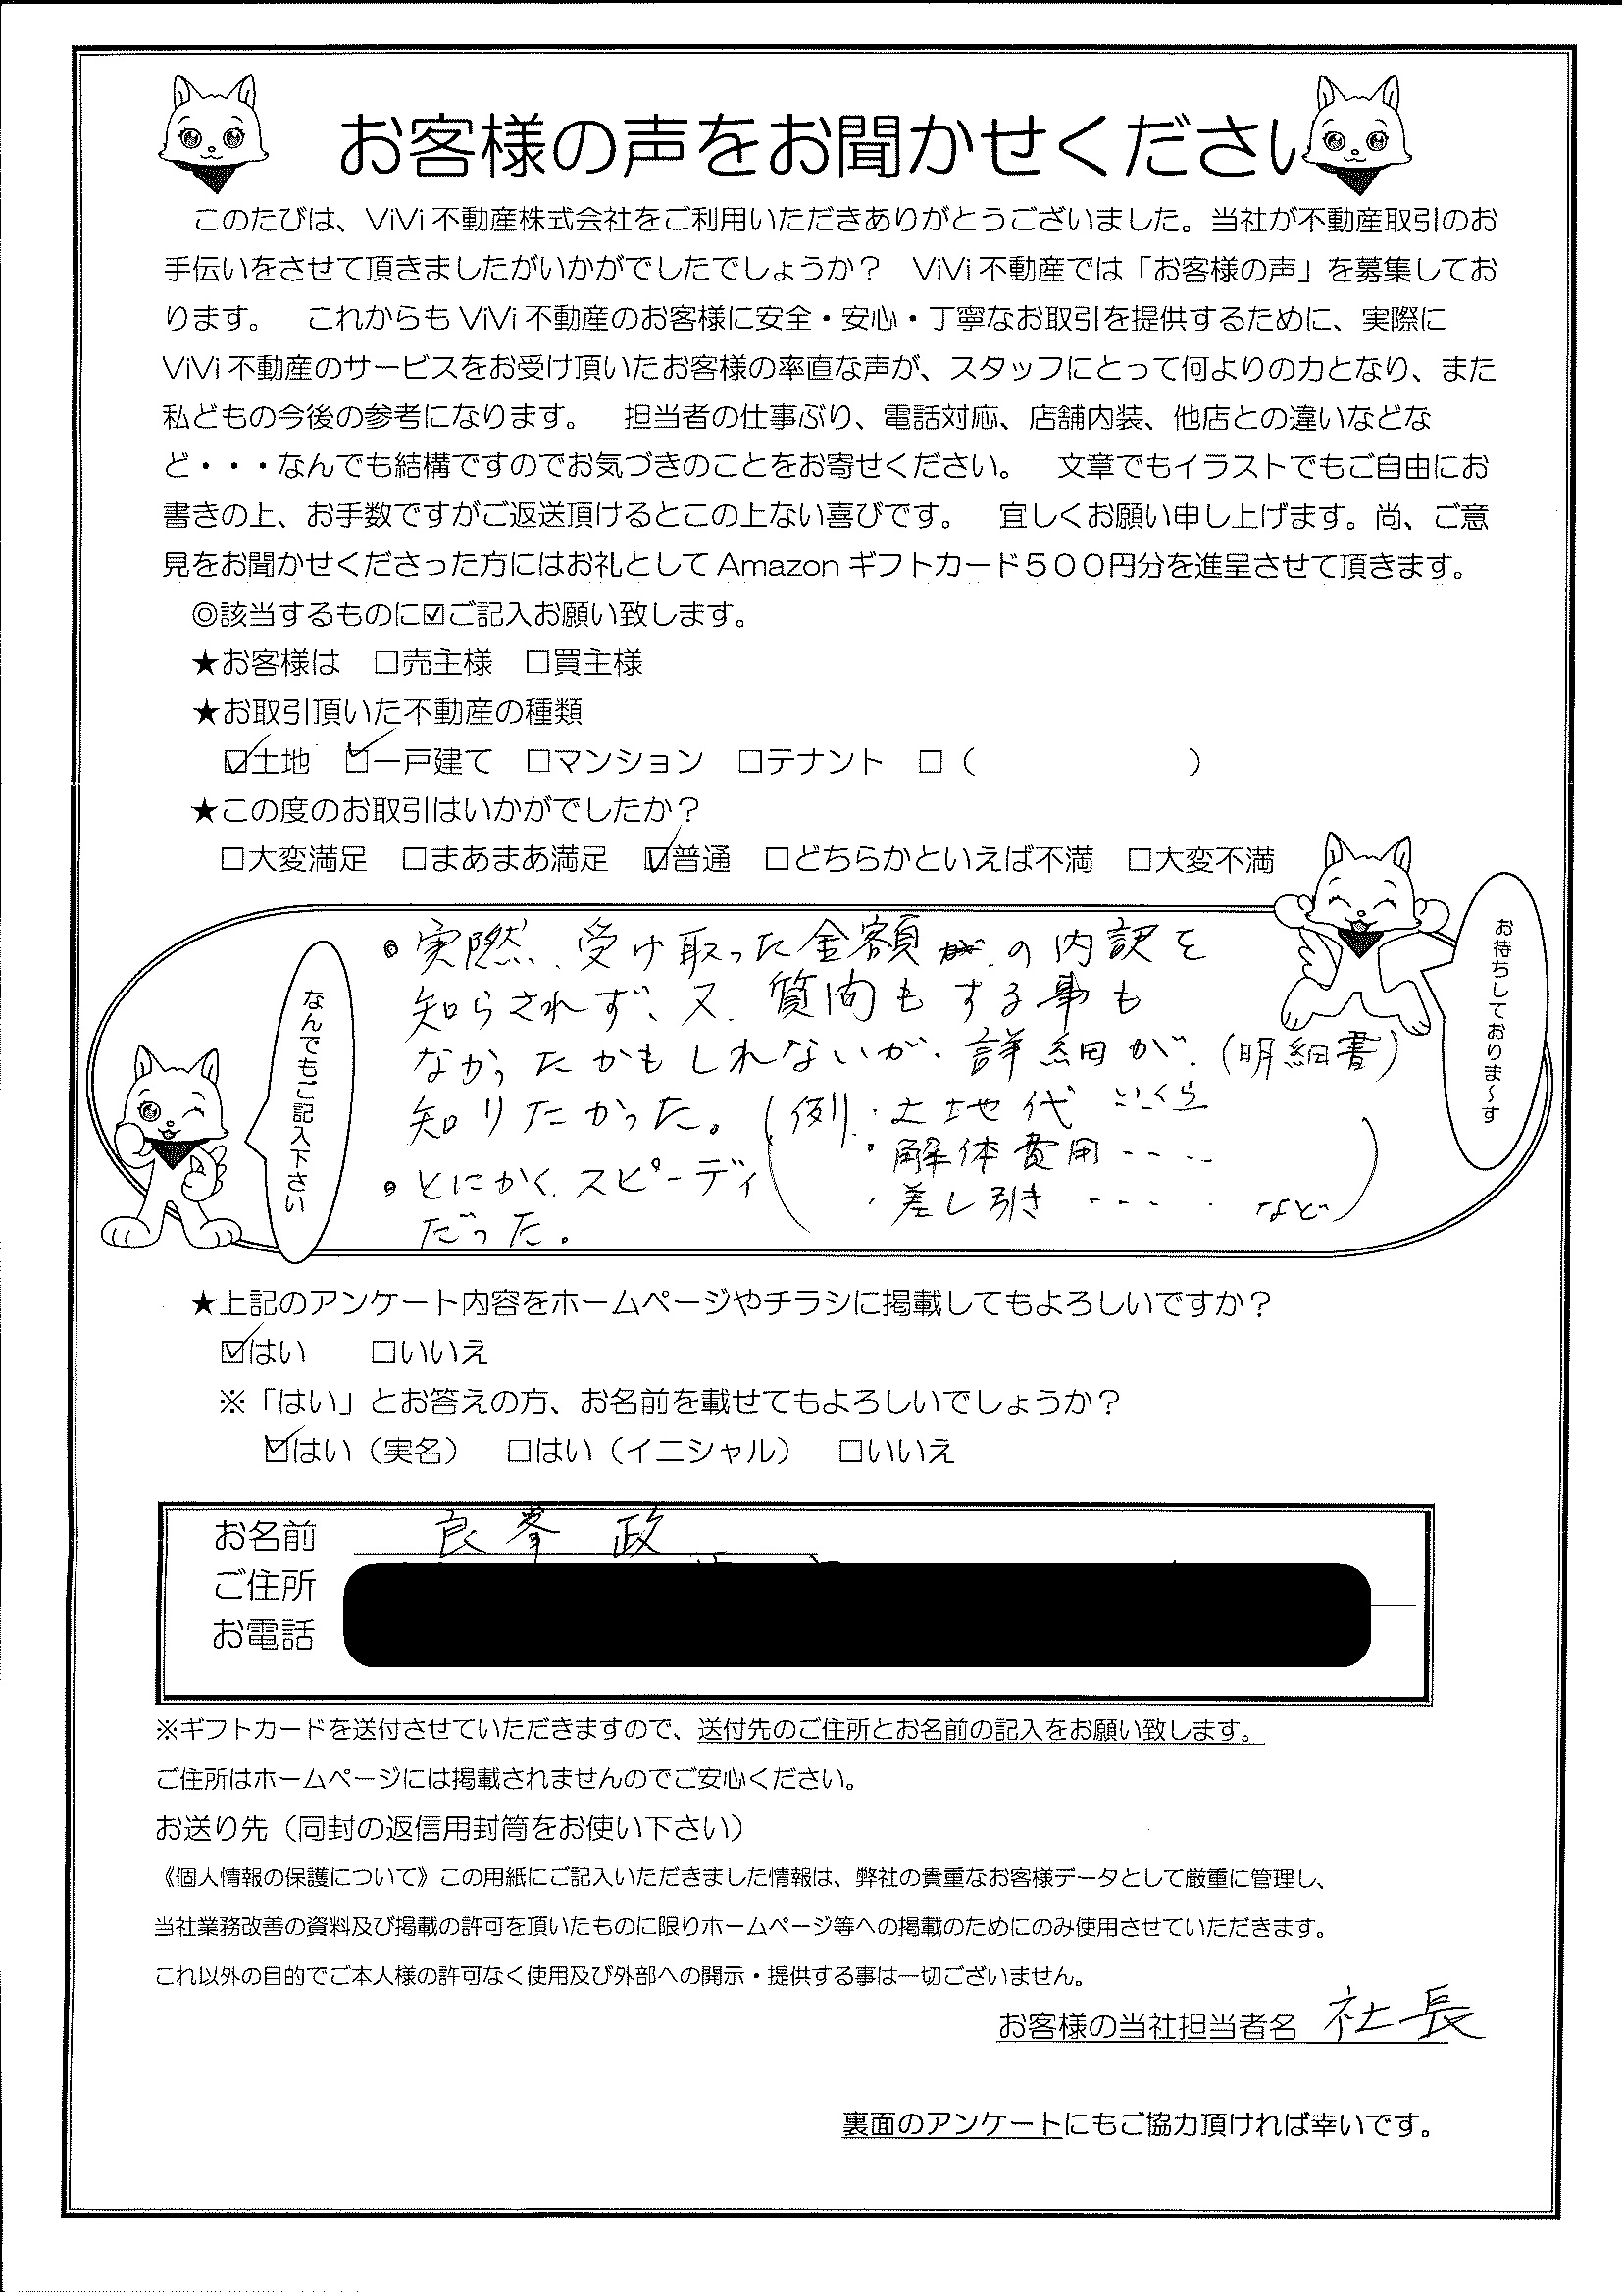 お客様の声をお聞かせください
このたびは、ViVi不動産株式会社をご利用いただきありがとうございました。当社が不動産取引のお
手伝いをさせて頂きましたがいかがでしたでしょうか？　ViVi不動産では「お客様の声」を募集してお
ります。　これからもViVi不動産のお客様に安全・安心・丁寧なお取引を提供するために、実際に
ViVi不動産のサービスをお受け頂いたお客様の率直な声が、スタッフにとって何よりの力となり、また
私どもの今後の参考になります。　担当者の仕事ぶり、電話対応、店舗内装、他店との違いなどな
ど・・・なんでも結構ですのでお気づきのことをお寄せください。　文章でもイラストでもご自由にお
書きの上、お手数ですがご返送頂けるとこの上ない喜びです。　宜しくお願い申し上げます。尚、ご意
見をお聞かせくださった方にはお礼としてAmazonギフトカード５００円分を進呈させて頂きます。
◎該当するものに☑ご記入お願い致します。
★お客様は　□売主様　□買主様
★お取引頂いた不動産の種類
☑土地　☑一戸建て　□マンション　□テナント　□（　　　　　　　）
★この度のお取引はいかがでしたか？
□大変満足　□まあまあ満足　☑普通　□どちらかといえば不満　□大変不満
お待ちしておりま～す
なんでもご記入下さい
・実際、受け取った金額の内訳を
知らされず、又、質問もする事も
なかったかもしれないが、詳細が、（明細書）
知りたかった。（例．・土地代　いくら
・解体費用‥‥
・差し引き‥‥．など）
・とにかく、スピーディ
だった。
★上記のアンケート内容をホームページやチラシに掲載してもよろしいですか？
☑はい　□いいえ
※「はい」とお答えの方、お名前を載せてもよろしいでしょうか？
☑はい（実名）　□はい（イニシャル）　□いいえ
お名前　良峯　政
ご住所
お電話
※ギフトカードを送付させていただきますので、送付先のご住所とお名前の記入をお願い致します。
ご住所はホームページには掲載されませんのでご安心ください。
お送り先（同封の返信用封筒をお使い下さい）
《個人情報の保護について》この用紙にご記入いただきました情報は、弊社の貴重なお客様データとして厳重に管理し、
当社業務改善の資料及び掲載の許可を頂いたものに限りホームページ等への掲載のためにのみ使用させていただきます。
これ以外の目的でご本人様の許可なく使用及び外部への開示・提供する事は一切ございません。
お客様の当社担当者名　社長
裏面のアンケートにもご協力頂ければ幸いです。